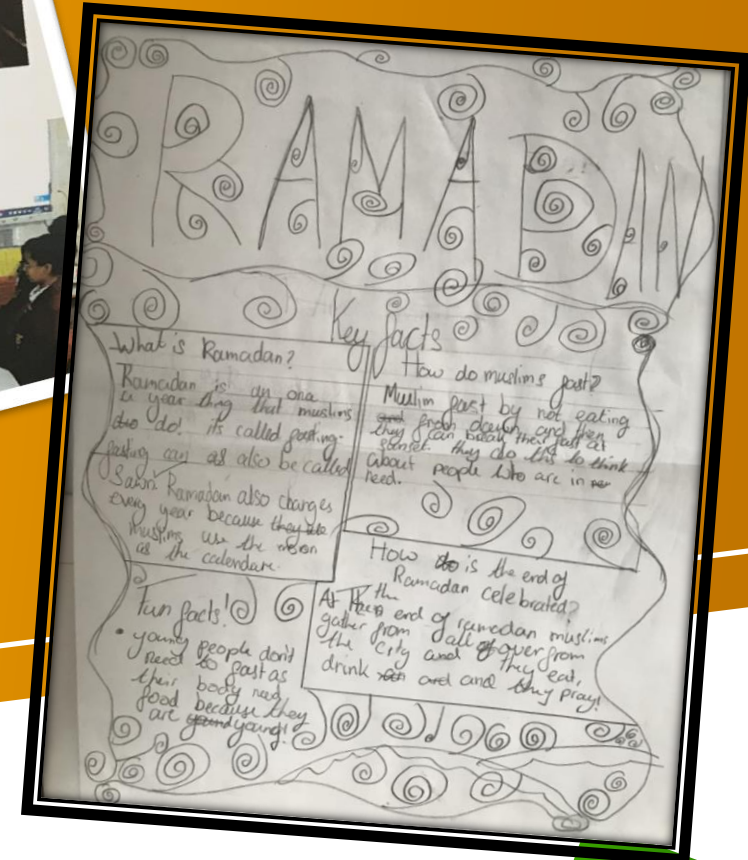 RAMADAN
Key facts
What is Ramadan?
Ramadan is an one
a year thing that muslims
do! its called fasting.
fasting can as also be called
Sawm Ramadan also changes
every year because they
muslims use the moon
as the calendure.
How do muslims fast?
Muslim fast by not eating
from dawn and then
they can break their fast at
sunset. they do this to think
about people who are in
need.
How is the end of
Ramadan celebrated?
At the end of ramedan muslims
gather from all over from
the city and they eat,
drink and and they pray!
Fun facts!
• young people don't
need to fast as
their body need
food because they
are young!